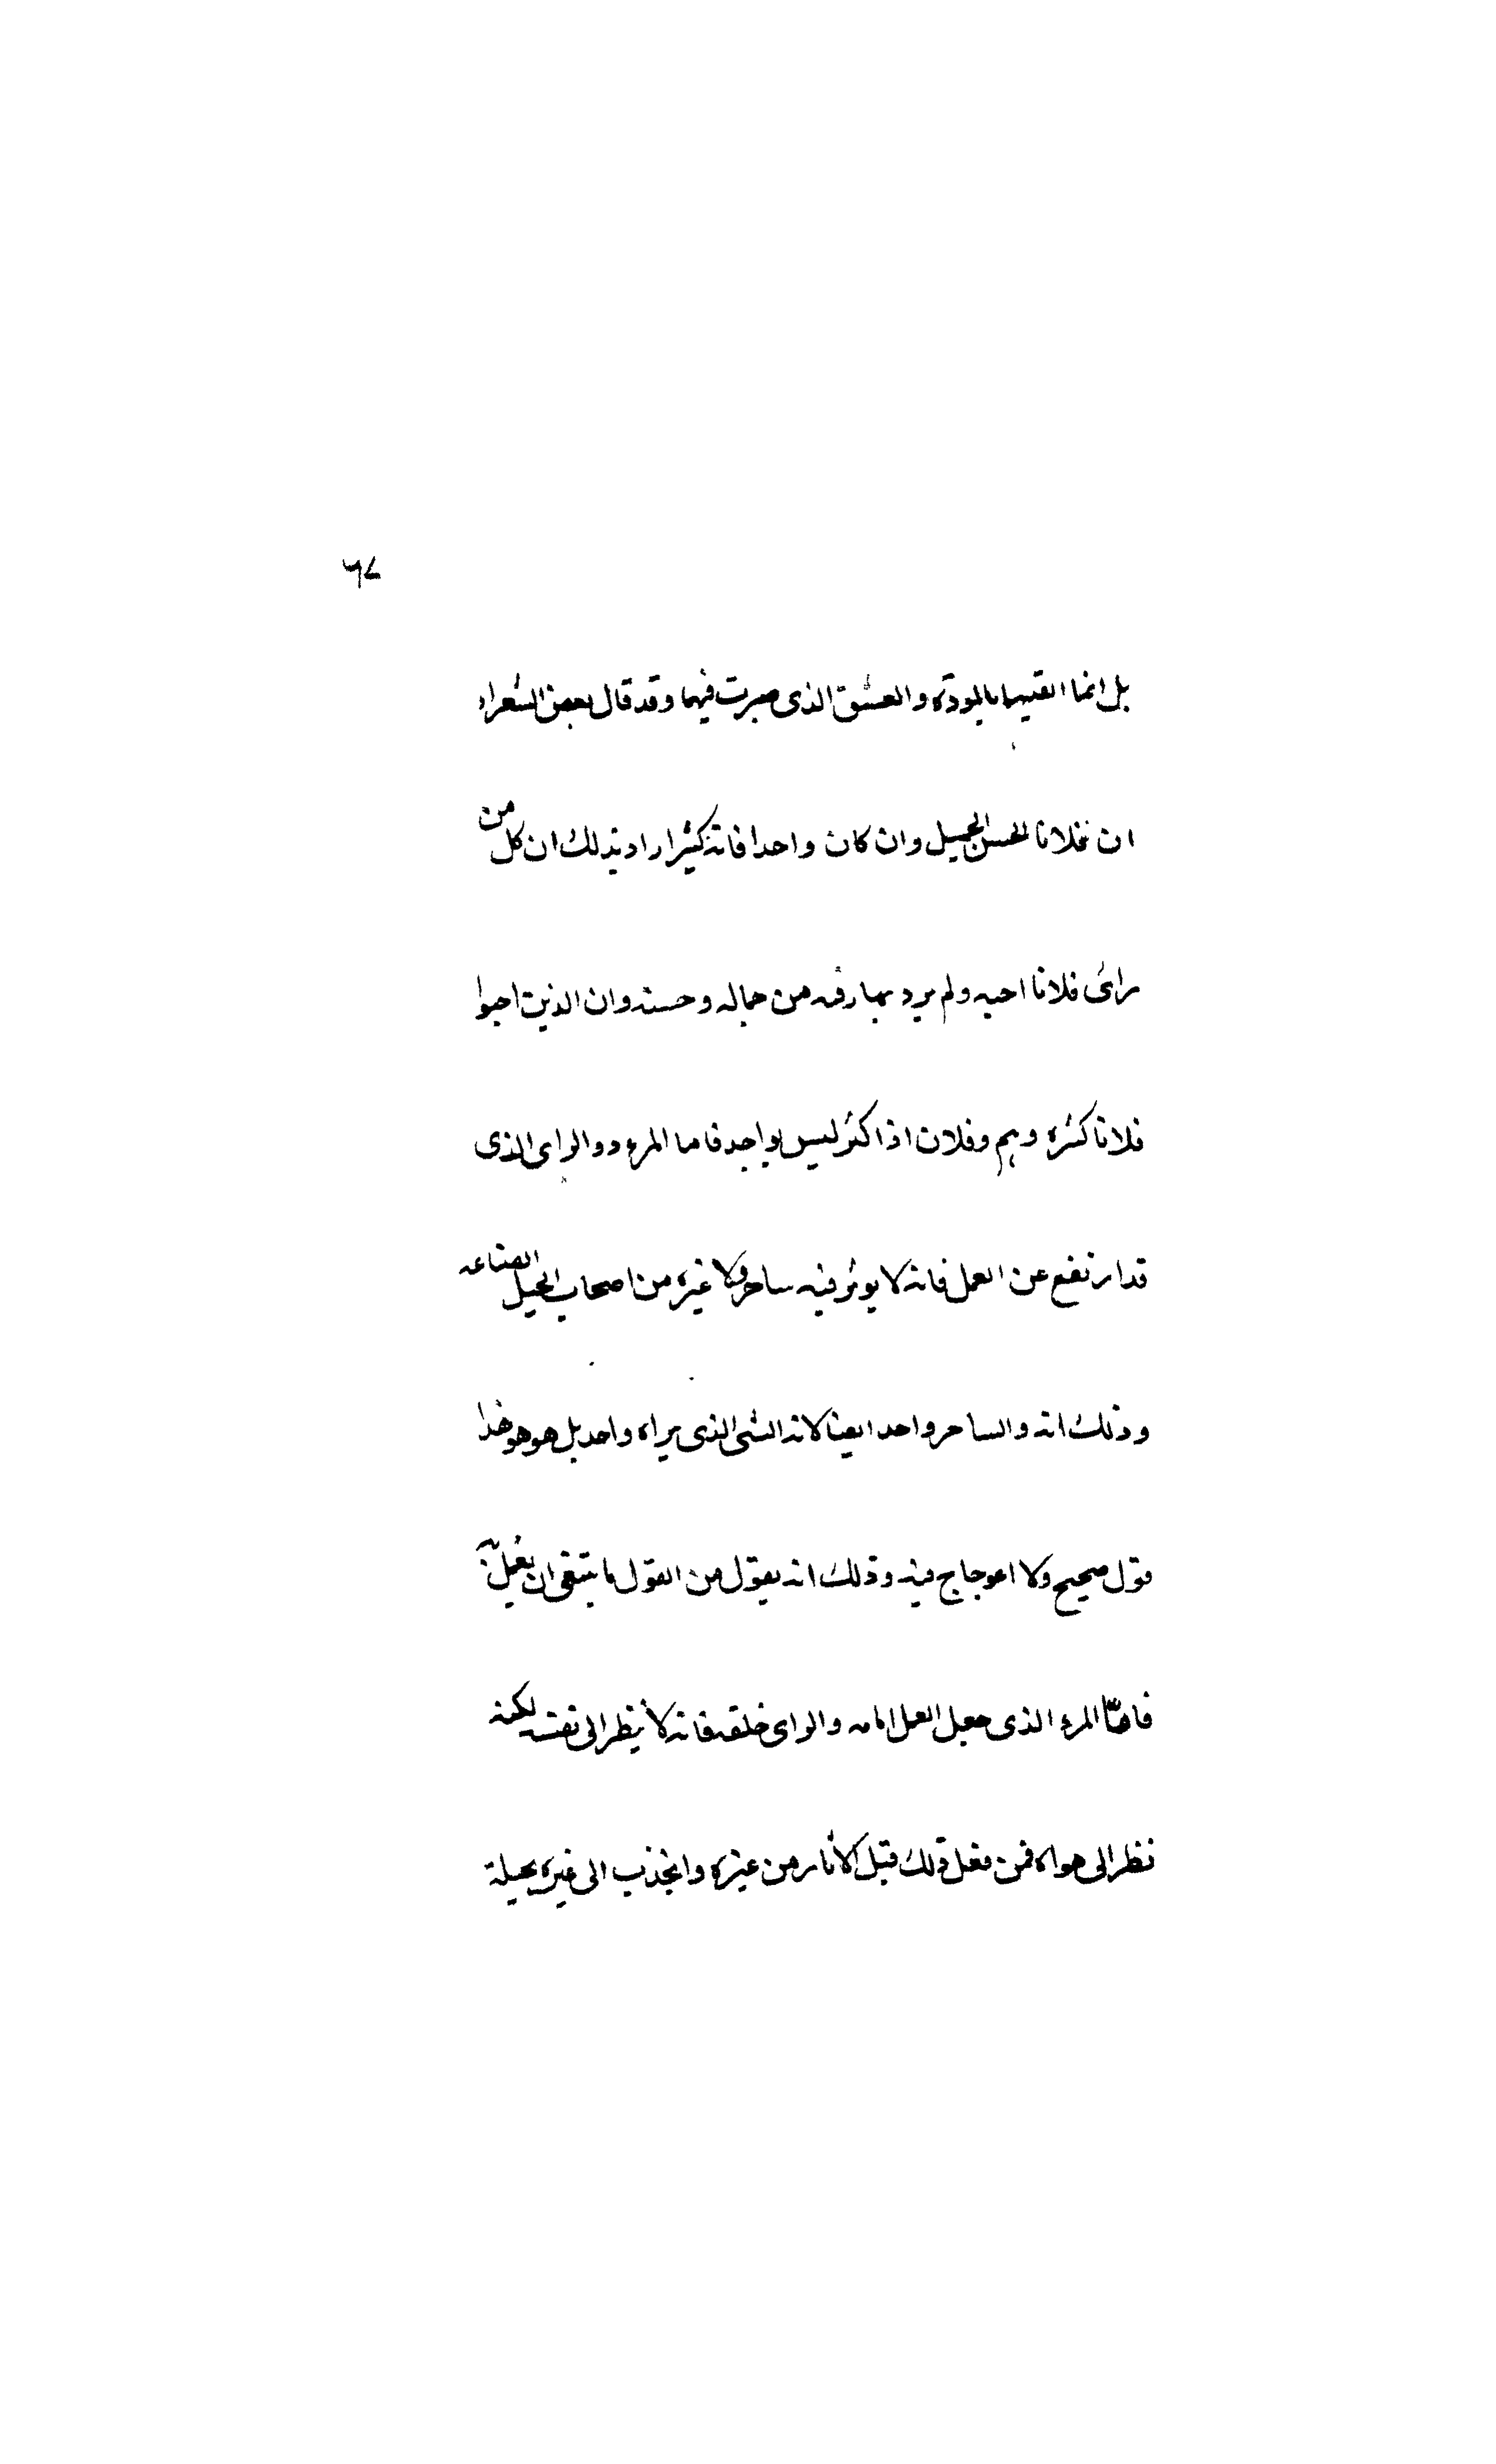 ٦٧
بل انما القيتها بالمودة والعشق الذى صيرت فيها وقد قال بعض الشعراء
ان فلانا الحسن الجميل وان كان واحدا فانه كثير اراد بذلك ان كل من
راى فلانا احبه ولم يرد يفارقه من جماله وحسنه وان الذين احبوا
فلانا كثره وهم وفلان اذا كثر ليس بواحد فاما المرء ذو الراى الذى
قد ارتفع عن العمل فانه لا يوثر فيه ساحر ولا غيره من اصحاب الحيل الصناعيه
وذلك انه والساحر واحد ايضا لانه الشى الذى يراه واحد بل هو هو هذا
قول صحيح ولا اعوجاج فيه وذلك انه يقول من القول ما ينبغى ان يفعل
فامّا المرء الذى جعل العمل امامه والراى خلفه فانه لا ينظر الى نفسه لكنه
نظر الى هواه فمن فعل ذلك قبل الاثار من غيره وانجذب الى غيره بحيلة